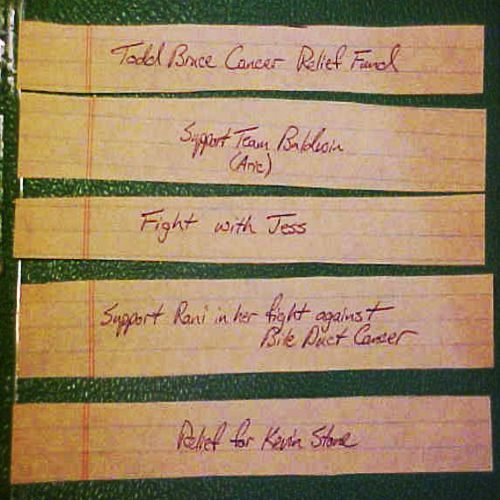 Todd Bruce Cancer Relief Fund
Support Team Baldwin
(Aric)
Fight with Jess
Support Rani in her fight against
Bile Duct Cancer
Relief for Kevin Stone